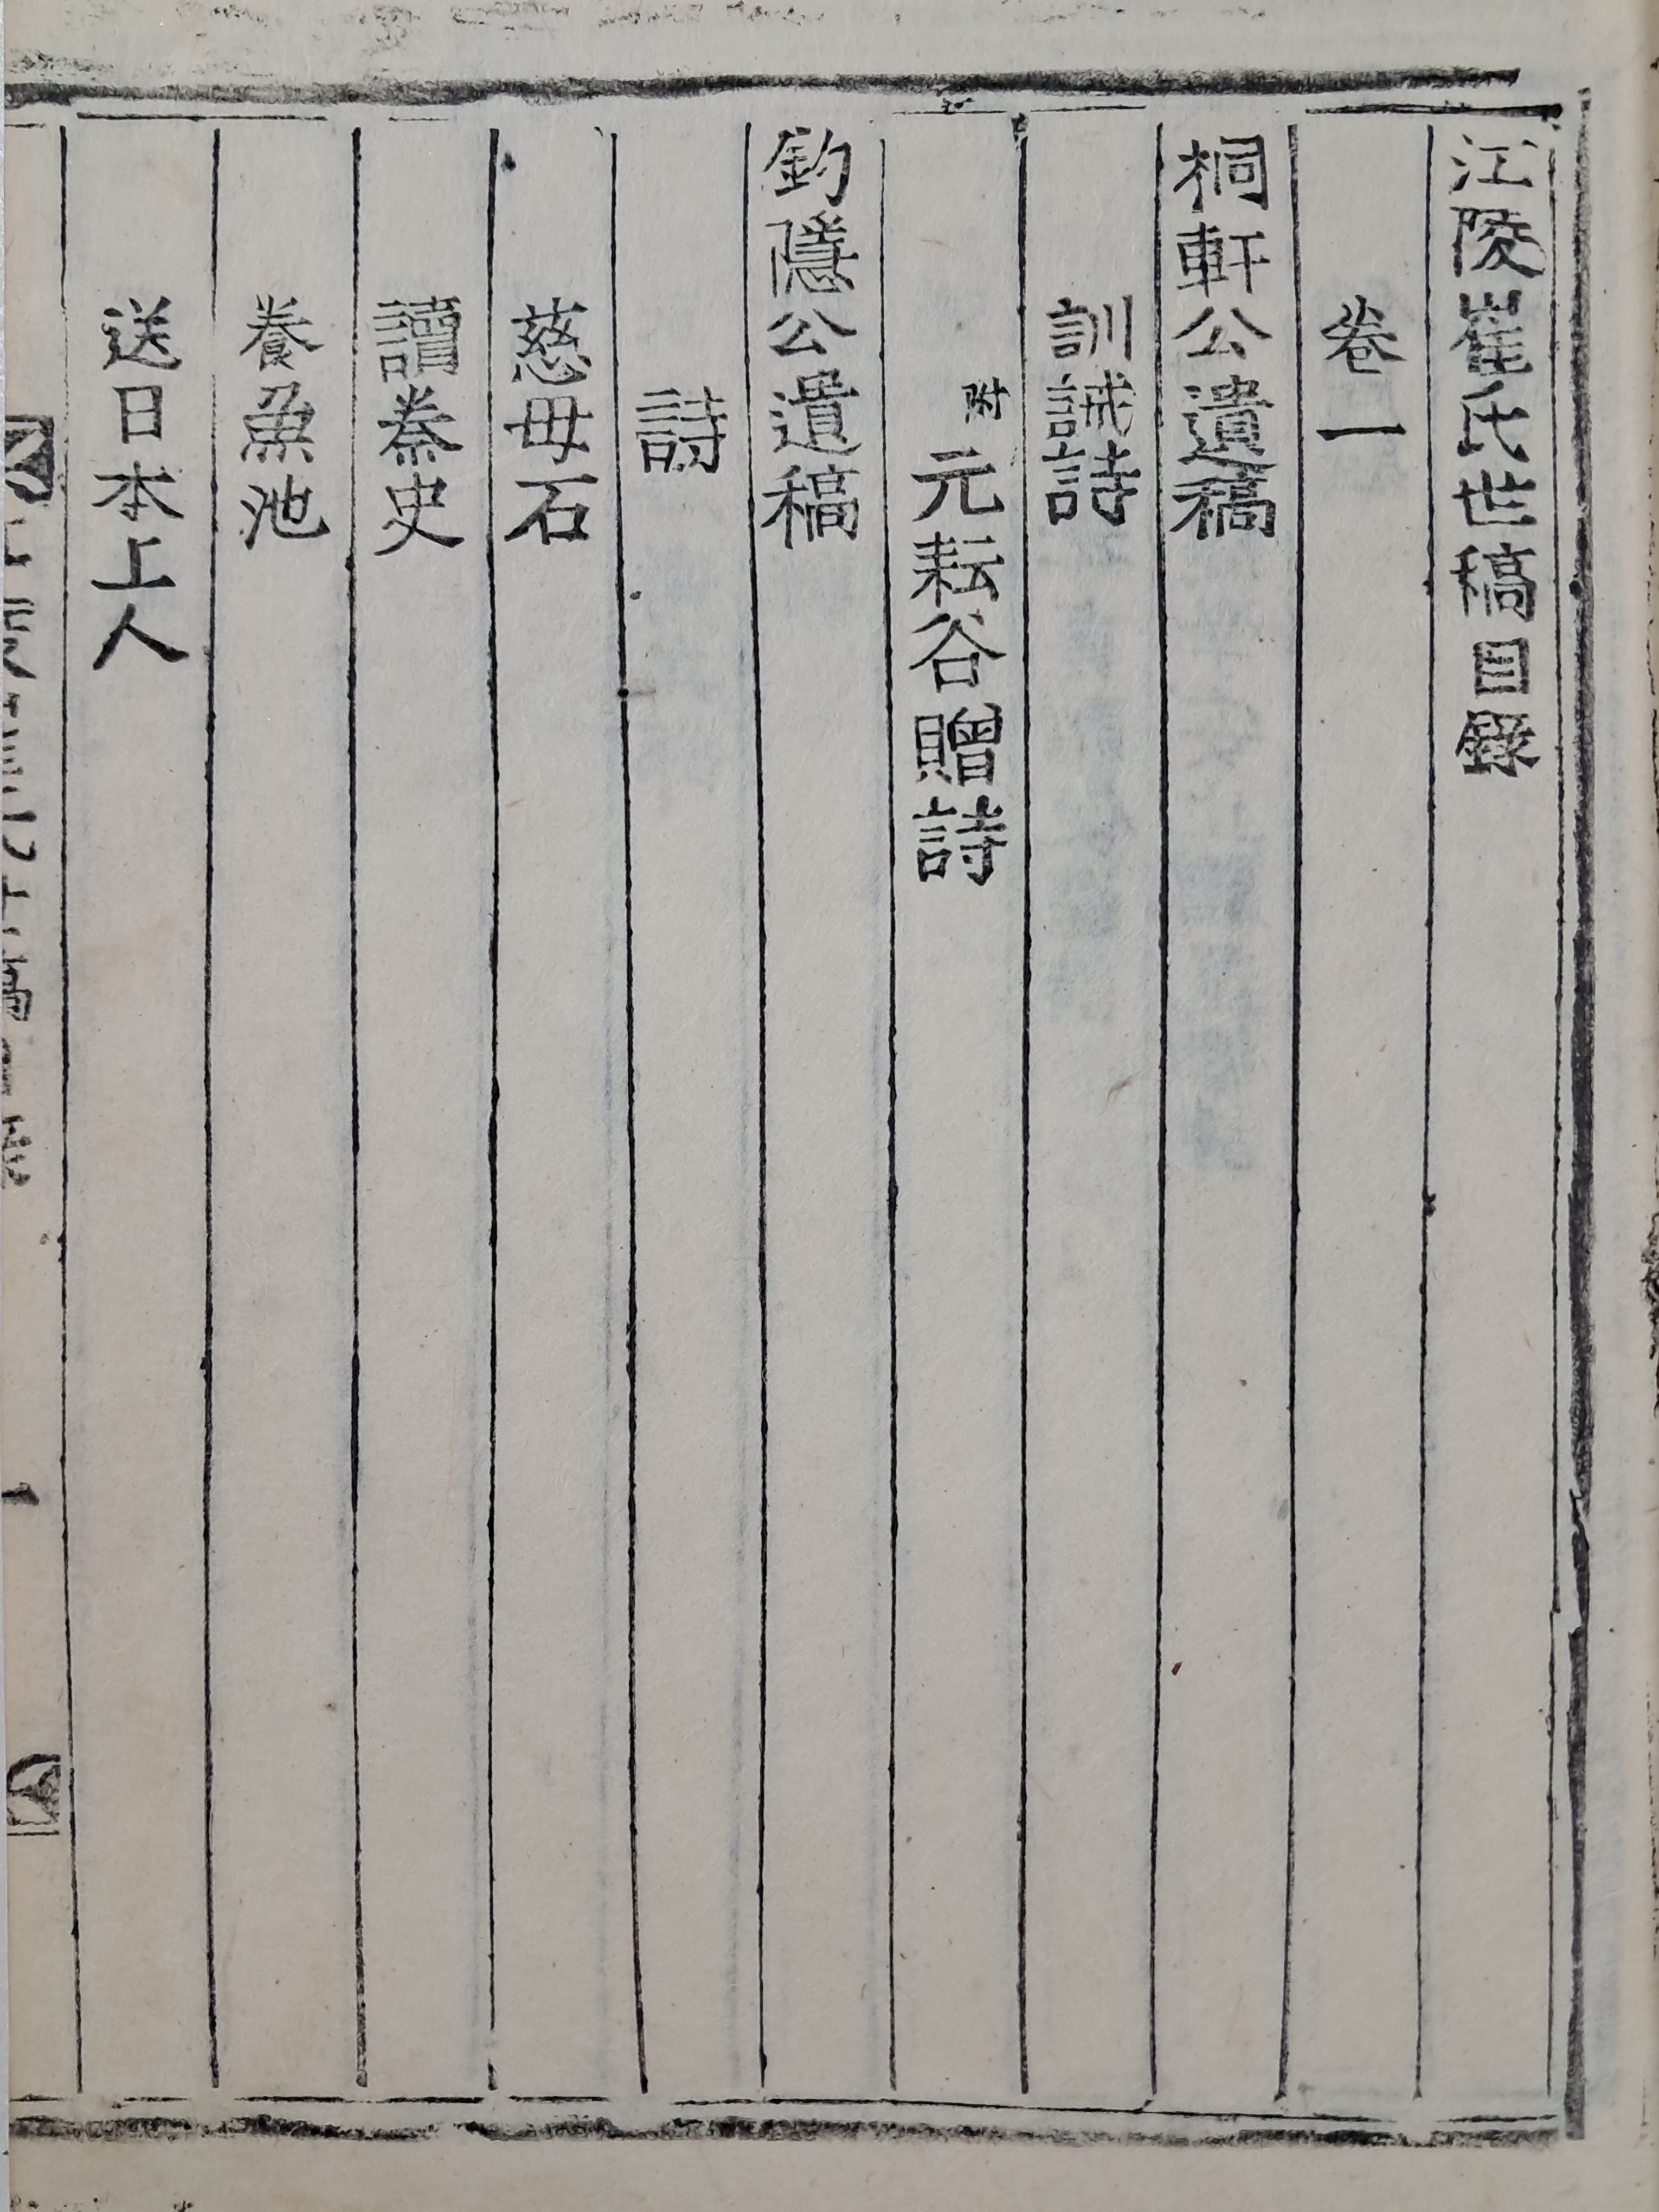 江陵崔氏世稿目錄
卷一
桐軒公遺稿
訓誡詩
附元耘谷贈詩
釣隱公遺稿
詩
慈母石
讀秦史
養魚池
送日本上人